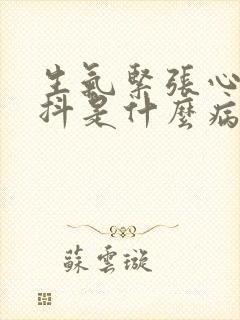 生氣緊張心
抖是什麼病
蘇雲璇